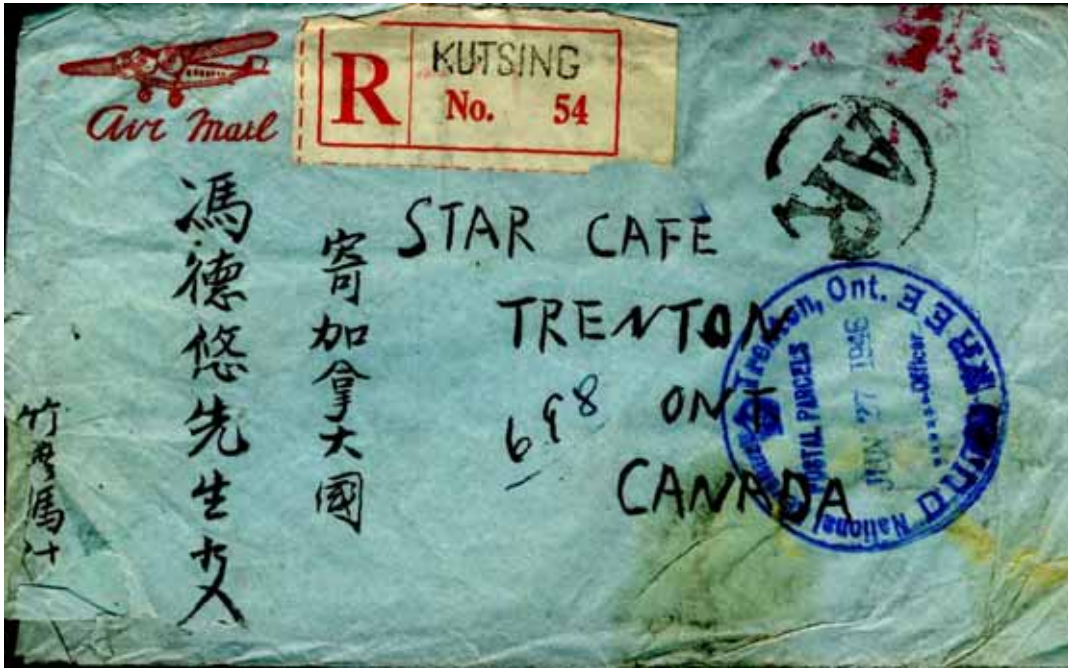 Air Mail
R
KUTSING
No. 54
AR
STAR CAFE
TRENTON
ONT
CANADA
698
寄加拿大國
馮德悠先生
National Trenton, Ont.
POSTAL PARCELS
JUN 27 1946
Officer
DUTY FREE